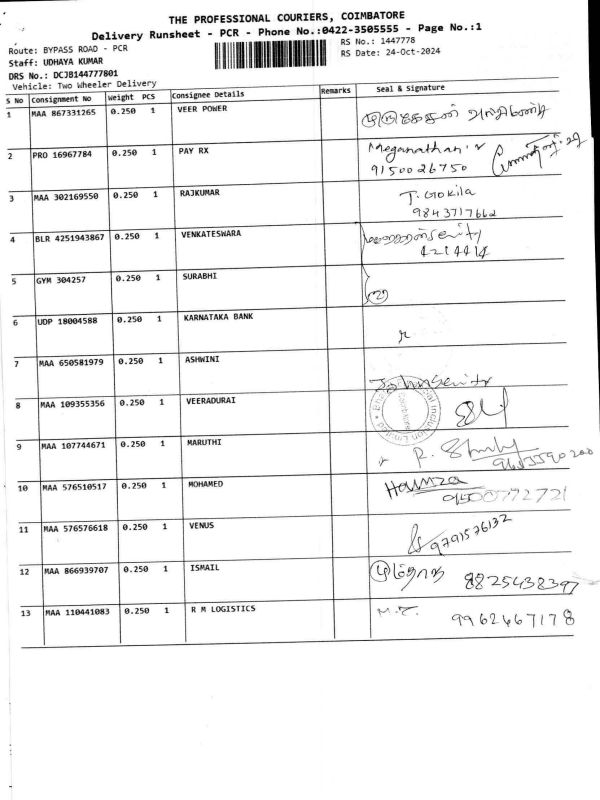 THE PROFESSIONAL COURIERS, COIMBATORE
Delivery Runsheet - PCR - Phone No.:0422-3505555 - Page No.:1
Route: BYPASS ROAD - PCR
RS No.: 1447778
Staff: UDHAYA KUMAR
RS Date: 24-Oct-2024
DRS No.: DCJB144777801
Vehicle: Two Wheeler Delivery
S No Consignment No Weight PCS Consignee Details Remarks Seal & Signature
1 MAA 867331265 0.250 1 VEER POWER
2 PRO 16967784 0.250 1 PAY RX Meganathan
9150026750
3 MAA 302169550 0.250 1 RAJKUMAR T. Gokila
9843717662
4 BLR 4251943867 0.250 1 VENKATESWARA
4214414
5 GYM 304257 0.250 1 SURABHI
6 UDP 18004588 0.250 1 KARNATAKA BANK
7 MAA 650581979 0.250 1 ASHWINI
8 MAA 109355356 0.250 1 VEERADURAI
9 MAA 107744671 0.250 1 MARUTHI
10 MAA 576510517 0.250 1 MOHAMED Hamza
9500772721
11 MAA 576576618 0.250 1 VENUS
9791576132
12 MAA 866939707 0.250 1 ISMAIL 8825438397
13 MAA 110441083 0.250 1 R M LOGISTICS 9962667178